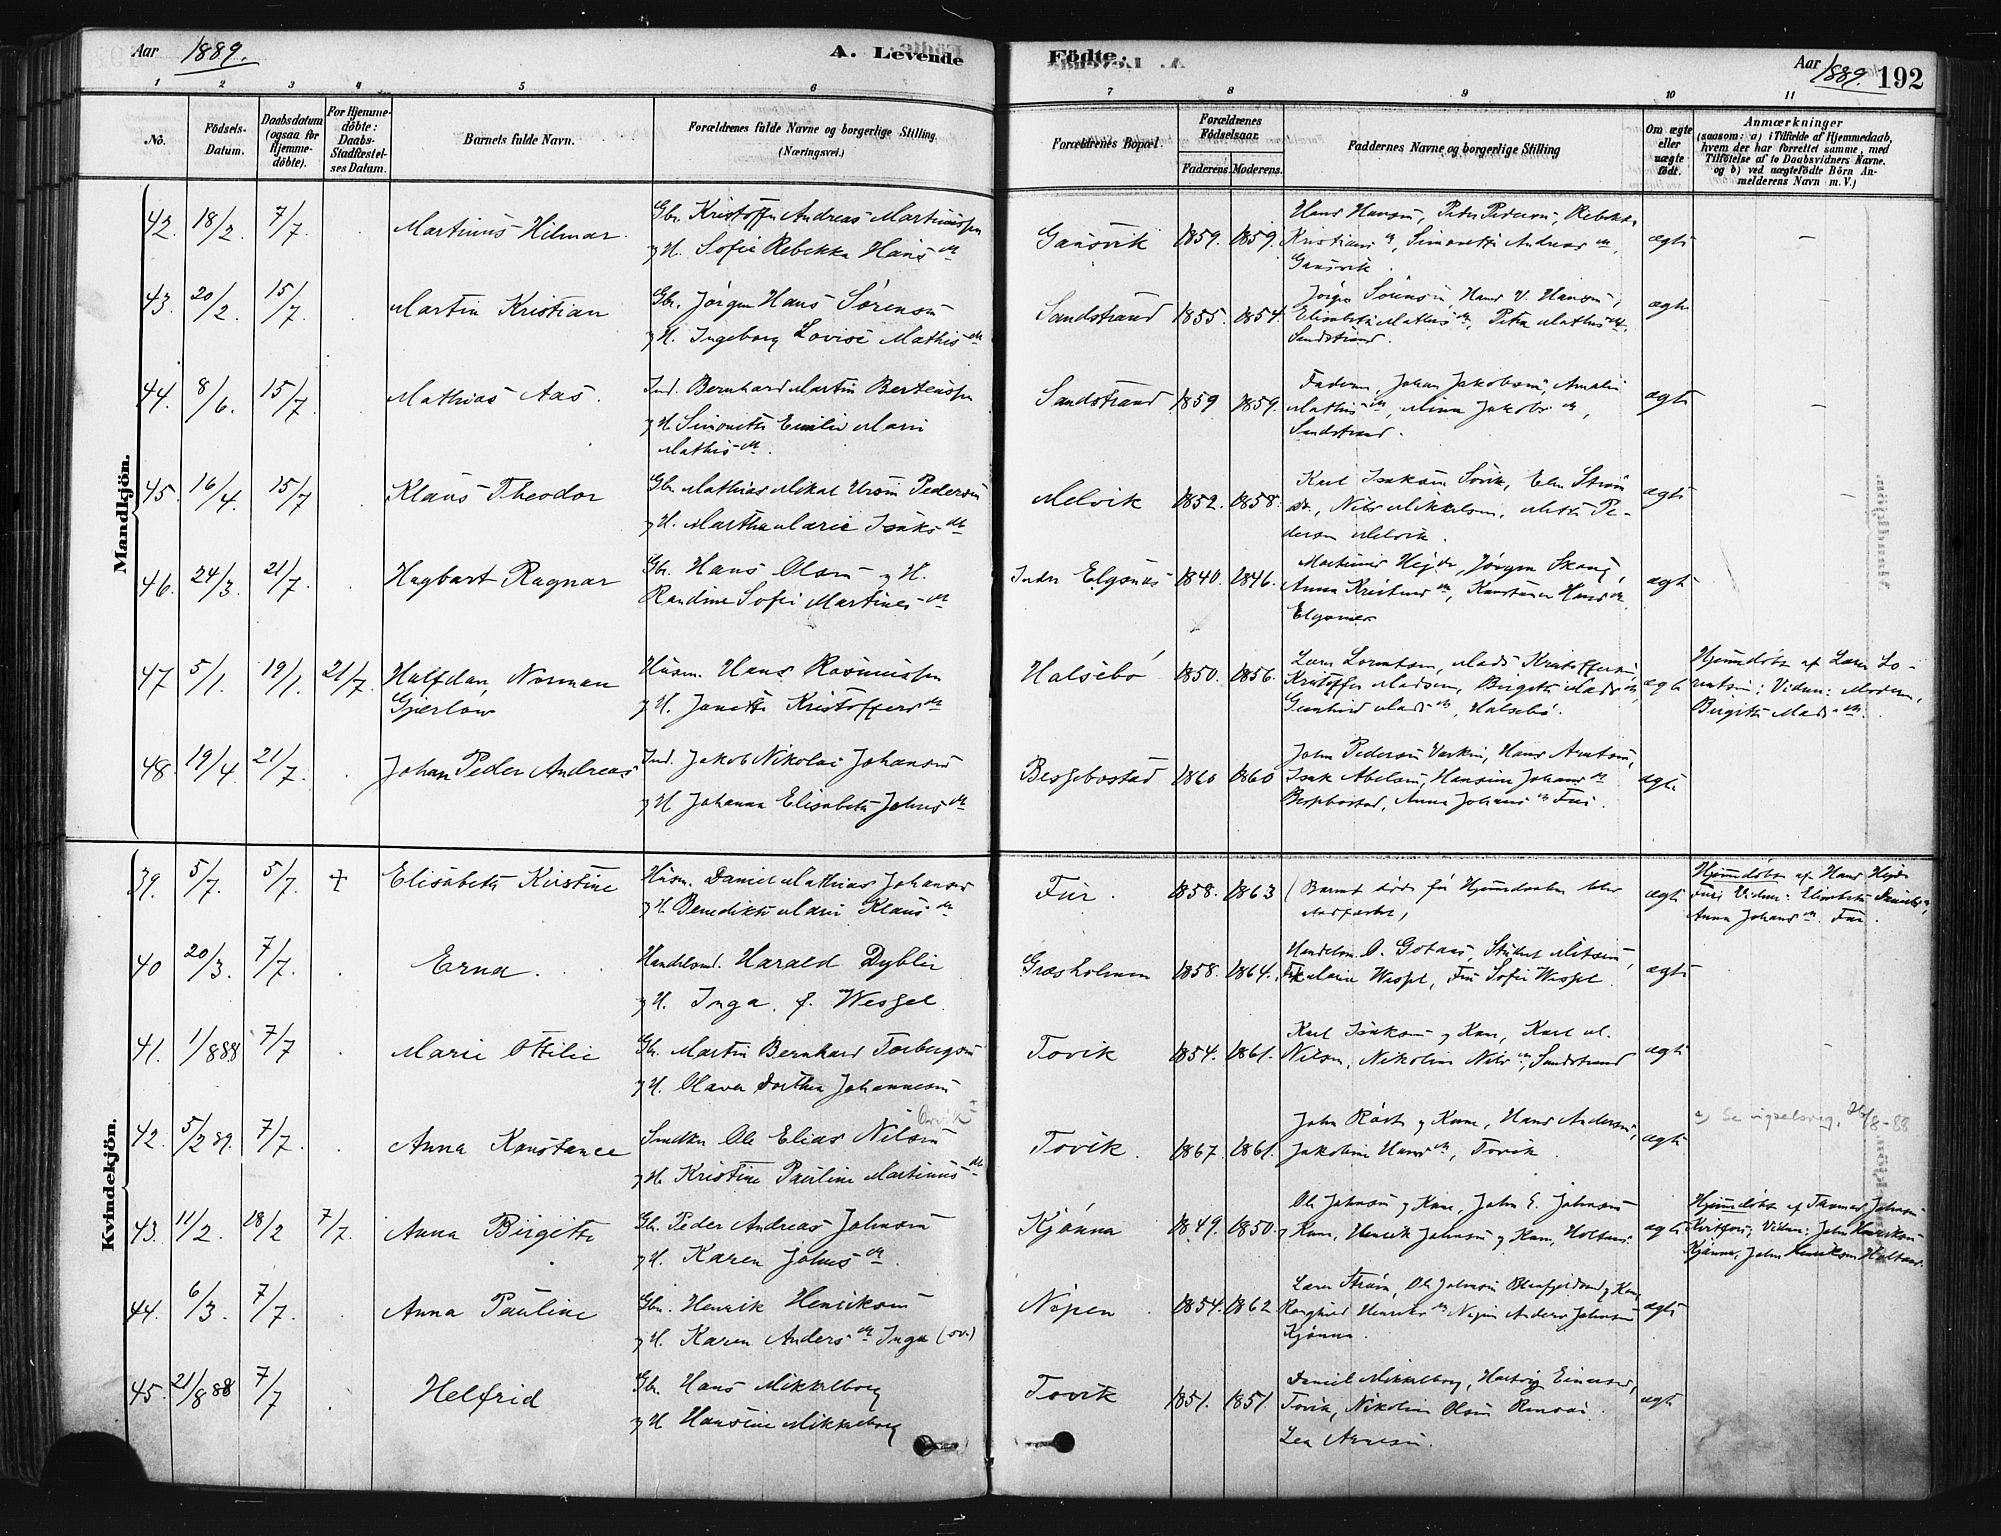 Aar 1889.
A. Levende
Födte.
Aar 1889. 192
1 2 3 4 5 6 7 8 9 10 11
No.
Födsels-Datum.
Daabsdatum (ogsaa for Hjemme-döbte).
For Hjemme-döbte: Daabs-Stadfæstel-ses Datum.
Barnets fulde Navn.
Forældrenes fulde Navne og borgerlige Stilling (Næringsvei.)
Forældrenes Bopæl.
Forældrenes Födselsaar.
Faderens. Moderens.
Faddernes Navne og borgerlige Stilling
Om ægte eller uægte födt.
Anmærkninger
(saasom: a) i Tilfælde af Hjemmedaab,
hvem der har forrettet samme, med
Tilföielse af to Daabsvidners Navne.
og b) ved uægtefödte Börn An-
melderens Navn m.V.)
Mandkjön.
42. 18/2. 7/7. Martinus Hilmar.
Gbr. Kristoffer Andreas Martinussen
og H. Sofie Rebekka Hans dtr
Gansvik 1859. 1859.
Hans Hansen, Peder Pedersen, Rebekka
Kristians dtr, Simonette Andreas dtr,
Gansvik.
ægte –
43. 20/2. 15/7. Martin Kristian
Gbr. Jørgen Hans Sørensen
og H. Ingeborg Lovise Mathis dtr
Sandstrand 1855. 1854.
Jørgen Sørensen, Hans V. Hansen,
Elisabeth Mathis dtr, Petra Mathis dtr,
Sandstrand.
ægte –
44. 8/6. 15/7. Mathias Aas.
Ind. Bernhard Martin Berteussen
og H. Simonette Emilie Marie
Mathis dtr.
Sandstrand 1859 1859.
Faderen, Johan Jakobsen, Amalie
Mathis dtr, Mina Jakobs dtr,
Sandstrand.
ægte –
45. 16/4. 15/7 Klaus Theodor
Gbr. Mathias Mikal Ursin Pedersen
og H. Martha Marie Isaks dtr
Melvik 1852. 1858.
Karl Isaksen Sørvik, Elen Strøm
Nils Mikkelsen, Mette Pe-
dersen Melvik.
ægte –
46. 24/3. 21/7. Hagbart Ragnar
Gbr. Hans Olsen og H.
Randine Sofie Martines dtr
Indre Elgsnes 1840. 1846.
Jørgen Skog,
Anna Kristens dtr, Konstanse Hans dtr
Elgsnes
ægte
47 5/1. 19/1. 21/7. Halfdan Norman
Gjerløw
Husm. Hans Rasmussen
og H. Janette Kristoffers dtr
Halsebø 1850. 1856.
Lars Lorentsen, Mads Kristoffersen,
Kristoffer Madsen, Birgitte Mads dtr,
Gunhild Mads dtr, Halsebø.
ægte
Hjemmedøbt af Lars Lo-
rentsen; Vidner: Moderen,
Birgitte Mads dtr.
48. 19/4. 21/7. Johan Peder Andreas
Ind. Jakob Nikolai Johansen
og H. Johanna Elisabeth Johns dtr
Bessebostad 1860 1860
John Pedersen, Hans Arntsen,
Isak Abelsen, Hansine Johans dtr
Bessebostad, Anna Johans dtr Fur.
ægte
Kvindekjön.
39. 5/7. 5/7. + Elisabeth Kirstine
Husm. Daniel Mathias Johansen
og H. Benedikte Marie Klaus dtr
Fur. 1858. 1863
(Barnet døde før Hjemmedaaben blev
stadfæstet)
ægte
Hjemmedøbt af Hans
Fur; Vidner: Elisabeth Daniels dtr,
Anna Johans dtr Fur.
40 20/3. 7/7. Erna.
Handelsmd. Harald Dyblie
og H. Inga f. Wessel
Græsholmen 1858. 1864.
Handelsm. O. Gotaas, Student
Frk Marie Wessel, Fru Sofie Wessel.
ægte
41. 1/8 88 7/7 Marie Ottilie
Gbr. Martin Bernhard Torbergsen
og H. Olava Dorthea Johannesen
Tovik 1854. 1861.
Karl Isaksen og Kone, Karl M.
Nilsen, Nikoline Nils dtr, Sandstrand
ægte –
42. 5/2 89. 7/7. Anna Konstance
Snedker Ole Elias Nilsen
og H. Kristine Pauline Martinus dtr
Tovik. 1867. 1861.
John Røst og Kone, Hans Andersen,
Jakobine Hans dtr, Tovik.
ægte
Se vigselsreg. 26/8-88
43. 11/2. 18/2 7/7. Anna Birgitte
Gbr. Peder Andreas Johnsen
og H. Karen Johns dtr.
Kjønna 1849. 1850.
Ole Johnsen og Kone, John E. Johnsen
og Kone, Henrik Johnsen og Kone, Holtens.
ægte
Hjemmedøbt af Thomas Johnsen
Kvitfors; Vidner: John Henriksen
Kjønna, John Henriksen Holtens.
44. 6/3. 7/7. Anna Pauline
Gbr. Henrik Henriksen
og H. Karen Anders dtr Inga (ov.)
Nøpen 1854. 1862
Lars Strøm, Ole Johnsen og Kone,
Ragnhild Henriks dtr Nøpen Anders Johnsen
Kjønna.
ægte
45. 21/8 88 7/7 Helfrid
Gbr. Hans Mikkelborg
og H. Hansine Mikkelborg
Tovik 1851. 1851.
Daniel Mikkelborg, Hartvig Einarsen,
Tovik, Nikoline Olsen
Lea Arnesen.
ægte